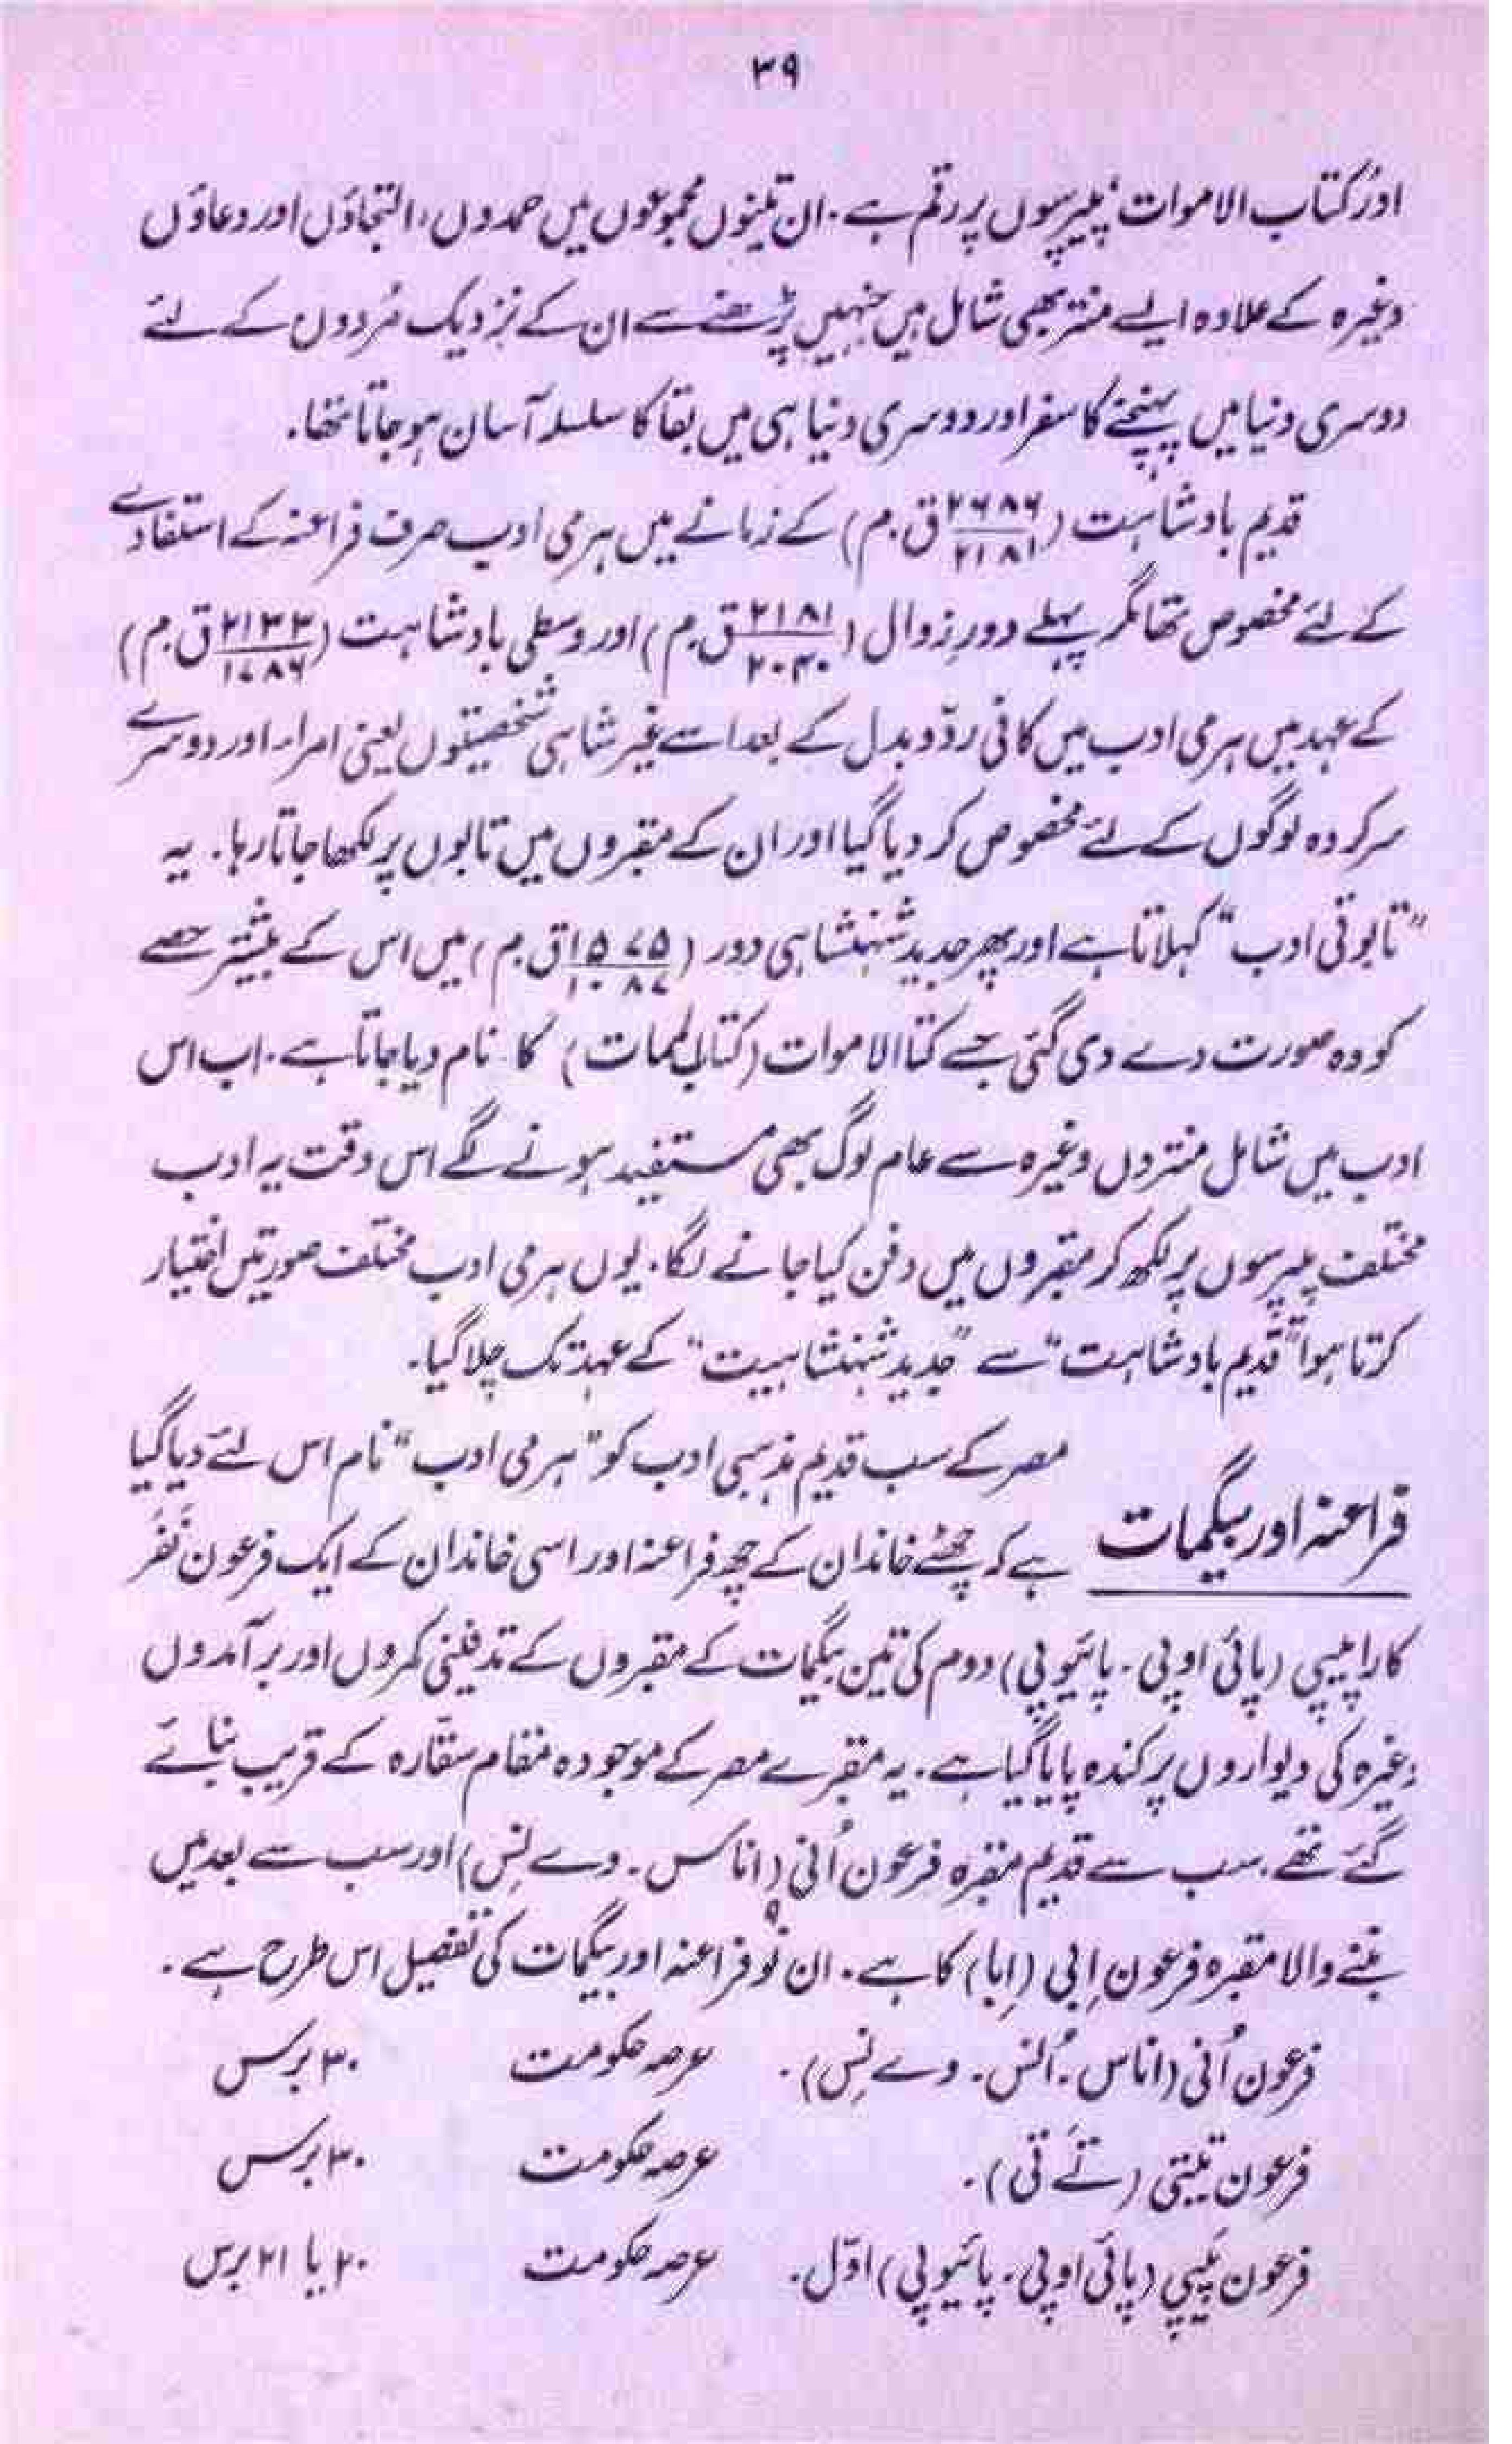 ۳۹
اور 'کتاب الاموات' پیپرسوں پر رقم ہے۔ ان تینوں مجموعوں میں حمدوں، التجاؤں اور دعاؤں
وغیرہ کے علاوہ ایسے منتر بھی شامل ہیں جنہیں پڑھنے سے ان کے نزدیک مُردوں کے لئے
دوسری دنیا میں پہنچنے کا سفر اور دوسری دنیا ہی میں بقا کا سلسلہ آسان ہو جاتا تھا۔
قدیم بادشاہت (۲۶۸۶/۲۱۸۱ ق.م) کے زمانے میں ہرمی ادب صرف فراعنہ کے استفادے
کے لئے مخصوص تھا مگر پہلے دورِ زوال (۲۱۸۱/۲۰۴۰ ق.م) اور وسطی بادشاہت (۲۱۳۳/۱۷۸۶ ق.م)
کے عہد میں ہرمی ادب میں کافی ردّ و بدل کے بعد اسے غیر شاہی شخصیتوں یعنی امراء اور دوسرے
سرکردہ لوگوں کے لئے مخصوص کر دیا گیا اور ان کے مقبروں میں تابوں پر لکھا جاتا رہا۔ یہ
"تابوتی ادب" کہلاتا ہے اور پھر جدید شہنشاہی دور (۱۵۷۵/۱۰۸۷ ق.م) میں اس کے بیشتر حصے
کو وہ صورت دے دی گئی جسے کتاالاموات (کتاب الممات) کا نام دیا جاتا ہے۔ اب اس
ادب میں شامل منتروں وغیرہ سے عام لوگ بھی مستفید ہونے لگے اس وقت یہ ادب
مختلف پیپرسوں پر لکھ کر مقبروں میں دفن کیا جانے لگا۔ یوں ہرمی ادب مختلف صورتیں اختیار
کرتا ہوا "قدیم بادشاہت" سے "جدید شہنشاہیت" کے عہد تک چلا گیا۔
فراعنہ اور بیگمات
مصر کے سب قدیم مذہبی ادب کو "ہرمی ادب" نام اس لئے دیا گیا
ہے کہ چھٹے خاندان کے چھ فراعنہ اور اسی خاندان کے ایک فرعون نَفَر
کارا پیپی (پائی اوپی۔ پائیوپی) دوم کی تین بیگمات کے مقبروں کے تدفینی کمروں اور برآمدوں
وغیرہ کی دیواروں پر کندہ پایا گیا ہے۔ یہ مقبرے مصر کے موجودہ مقام سقّارہ کے قریب بنائے
گئے تھے۔ سب سے قدیم مقبرہ فرعون اُنی (اناکس۔ وے نِس) اور سب سے بعد میں
بننے والا مقبرہ فرعون اِبی (اِبا) کا ہے۔ ان نو۹ فراعنہ اور بیگمات کی تفصیل اس طرح ہے۔
فرعون اُنی (اناس۔ اُنس۔ وے نِس)۔ عرصہ حکومت ۳۰ برس
فرعون تیتی (تے تی)۔ عرصہ حکومت ۳۰ برس
فرعون پَیپی (پائی اوپی۔ پائیوپی) اوّل۔ عرصہ حکومت ۲۰ یا ۲۱ برس